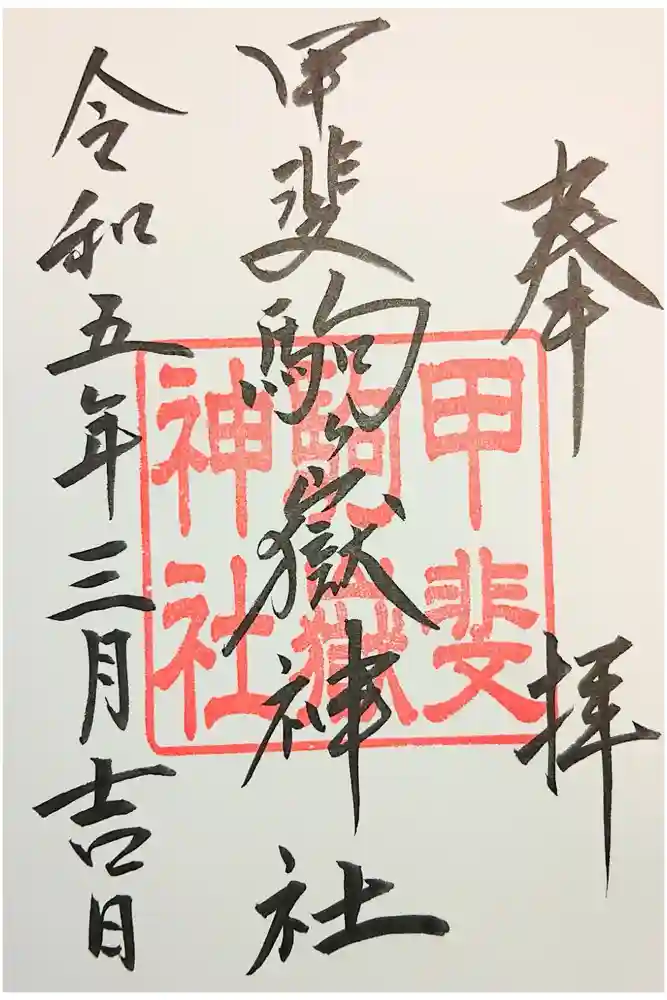 奉拝
甲斐駒ヶ嶽神社
令和五年三月吉日
甲斐
駒嶽
神社